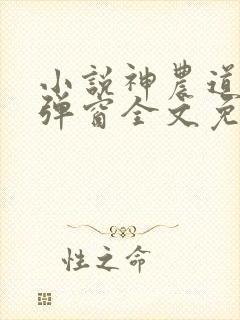 小説神農道
弾窗全文免
性之命